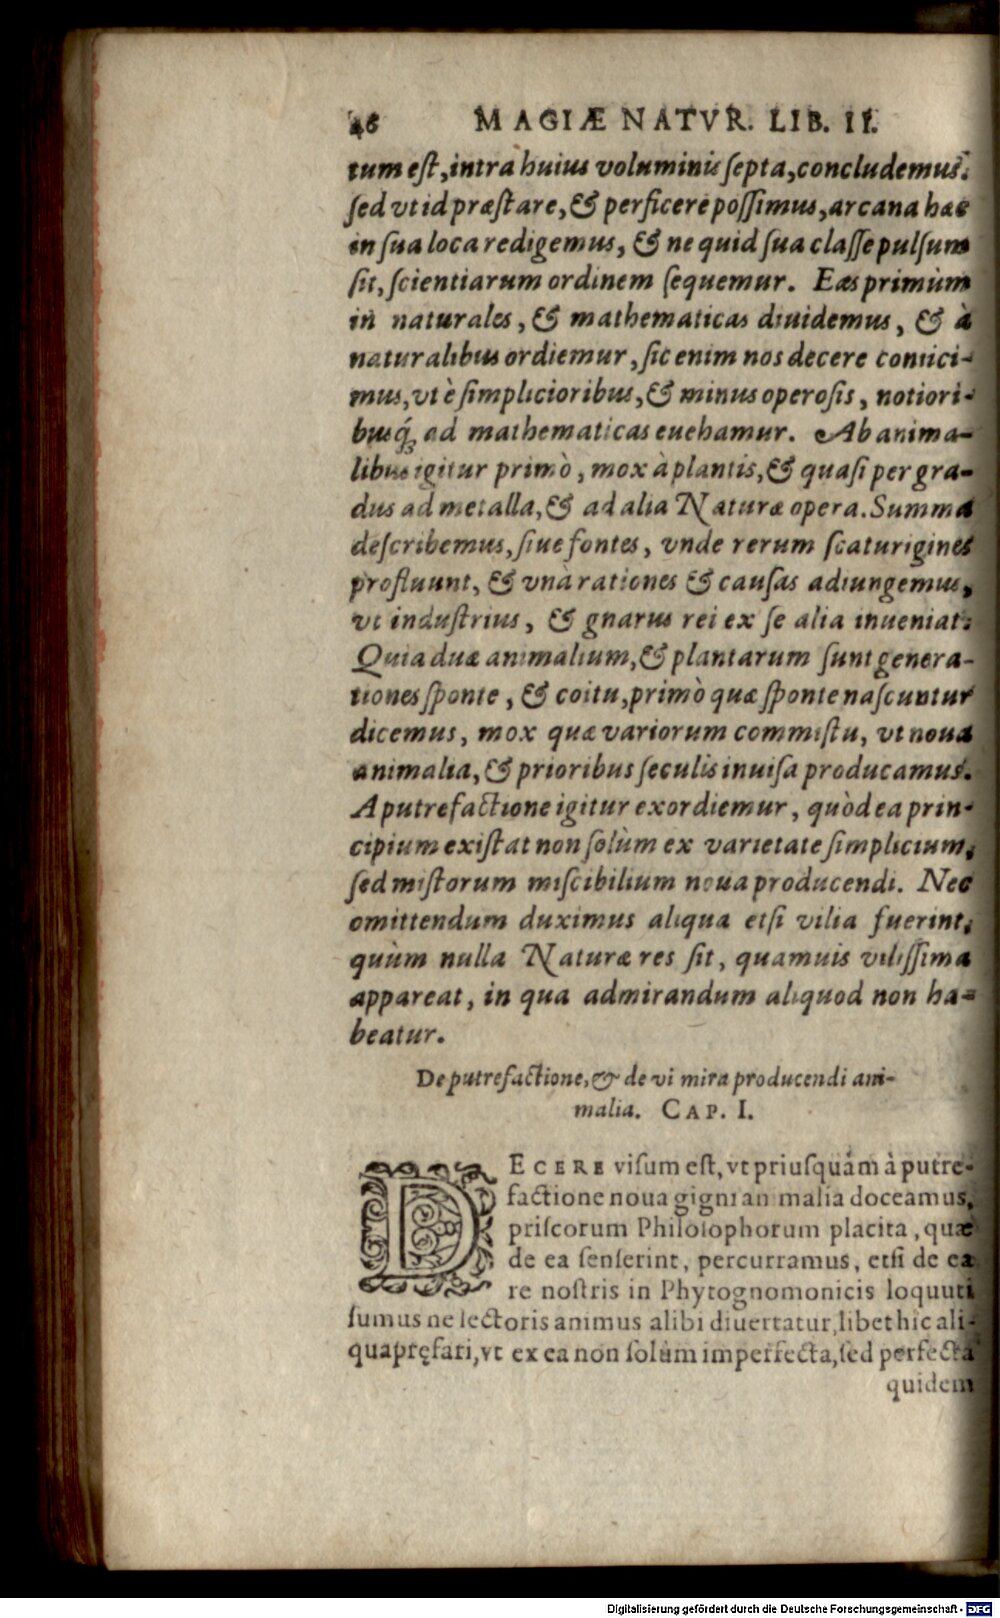 46 MAGIÆ NATVR. LIB. II.
tum eſt, intra huius voluminis ſepta, concludemus.
ſed vt id præſtare, & perficere poſſimus, arcana hæc
in ſua loca redigemus, & ne quid ſua claſſe pulſum
ſit, ſcientiarum ordinem ſequemur. Eas primùm
in naturales, & mathematicas diuidemus, & à
naturalibus ordiemur, ſic enim nos decere conijci-
mus, vt è ſimplicioribus, & minus operoſis, notiori-
buſq́; ad mathematicas euehamur. Ab anima-
libus igitur primò, mox à plantis, & quaſi per gra-
dus ad metalla, & ad alia Naturæ opera. Summa
deſcribemus, ſiue fontes, vnde rerum ſcaturigines
profluunt, & vnà rationes & cauſas adiungemus,
vt induſtrius, & gnarus rei ex ſe alia inueniat.
Quia duæ animalium, & plantarum ſunt genera-
tiones ſponte, & coitu, primò quæ ſponte naſcuntur
dicemus, mox quæ variorum commiſtu, vt noua
animalia, & prioribus ſeculis inuiſa producamus.
A putrefactione igitur exordiemur, quòd ea prin-
cipium exiſtat non ſolùm ex varietate ſimplicium,
ſed miſtorum miſcibilium noua producendi. Nec
omittendum duximus aliqua etſi vilia fuerint,
quùm nulla Naturæ res ſit, quamuis viliſſima
appareat, in qua admirandum aliquod non ha-
beatur.
De putrefactione, & de vi mira producendi ani-
malia. CAP. I.
DECERE viſum eſt, vt priuſquàm à putre-
factione noua gigni animalia doceamus,
priſcorum Philoſophorum placita, quæ
de ea ſenſerint, percurramus, etſi de ea
re noſtris in Phytognomonicis loquuti
ſumus ne lectoris animus alibi diuertatur, libet hic ali-
qua pręfari, vt ex ea non ſolùm imperfecta, ſed perfecta
quidem
Digitalisierung gefördert durch die Deutsche Forschungsgemeinschaft - DFG